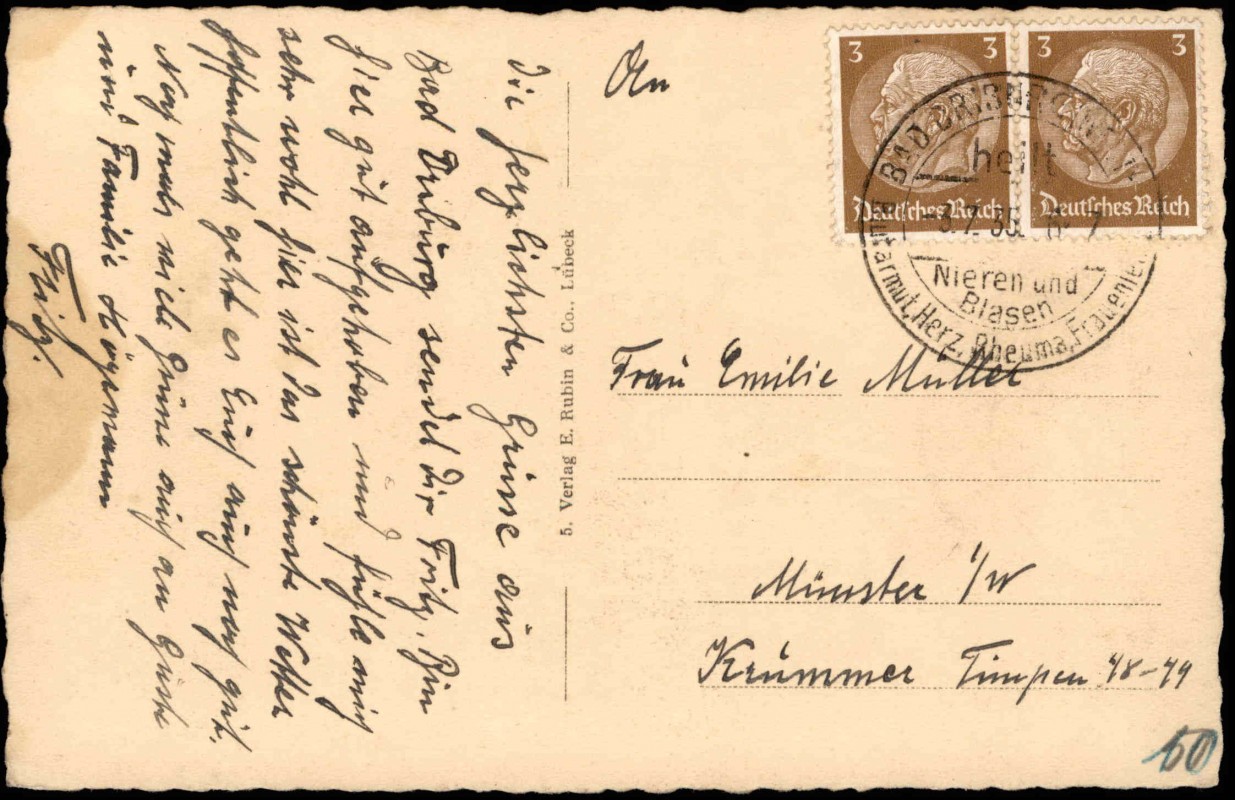 Die herzlichsten Grüsse aus
Bad Driburg sendet dir Fritz. Bin
hier gut aufgehoben und fühle mich
sehr wohl hier ist das schönste Wetter
hoffentlich geht es Euch auch noch gut.
Noch mals viele Grüsse auch an
und Familie Högemann
Fritz.
5. Verlag E. Rubin & Co., Lübeck
An
3 3
Deutsches Reich
3 3
Deutsches Reich
BAD DRIBURG
heilt
-3.7.35
Nieren und
Blasen
armut, Herz, Rheuma, Frauenlei
Frau Emilie Müller
Münster i/W
Krummer Timpen 48-49
60